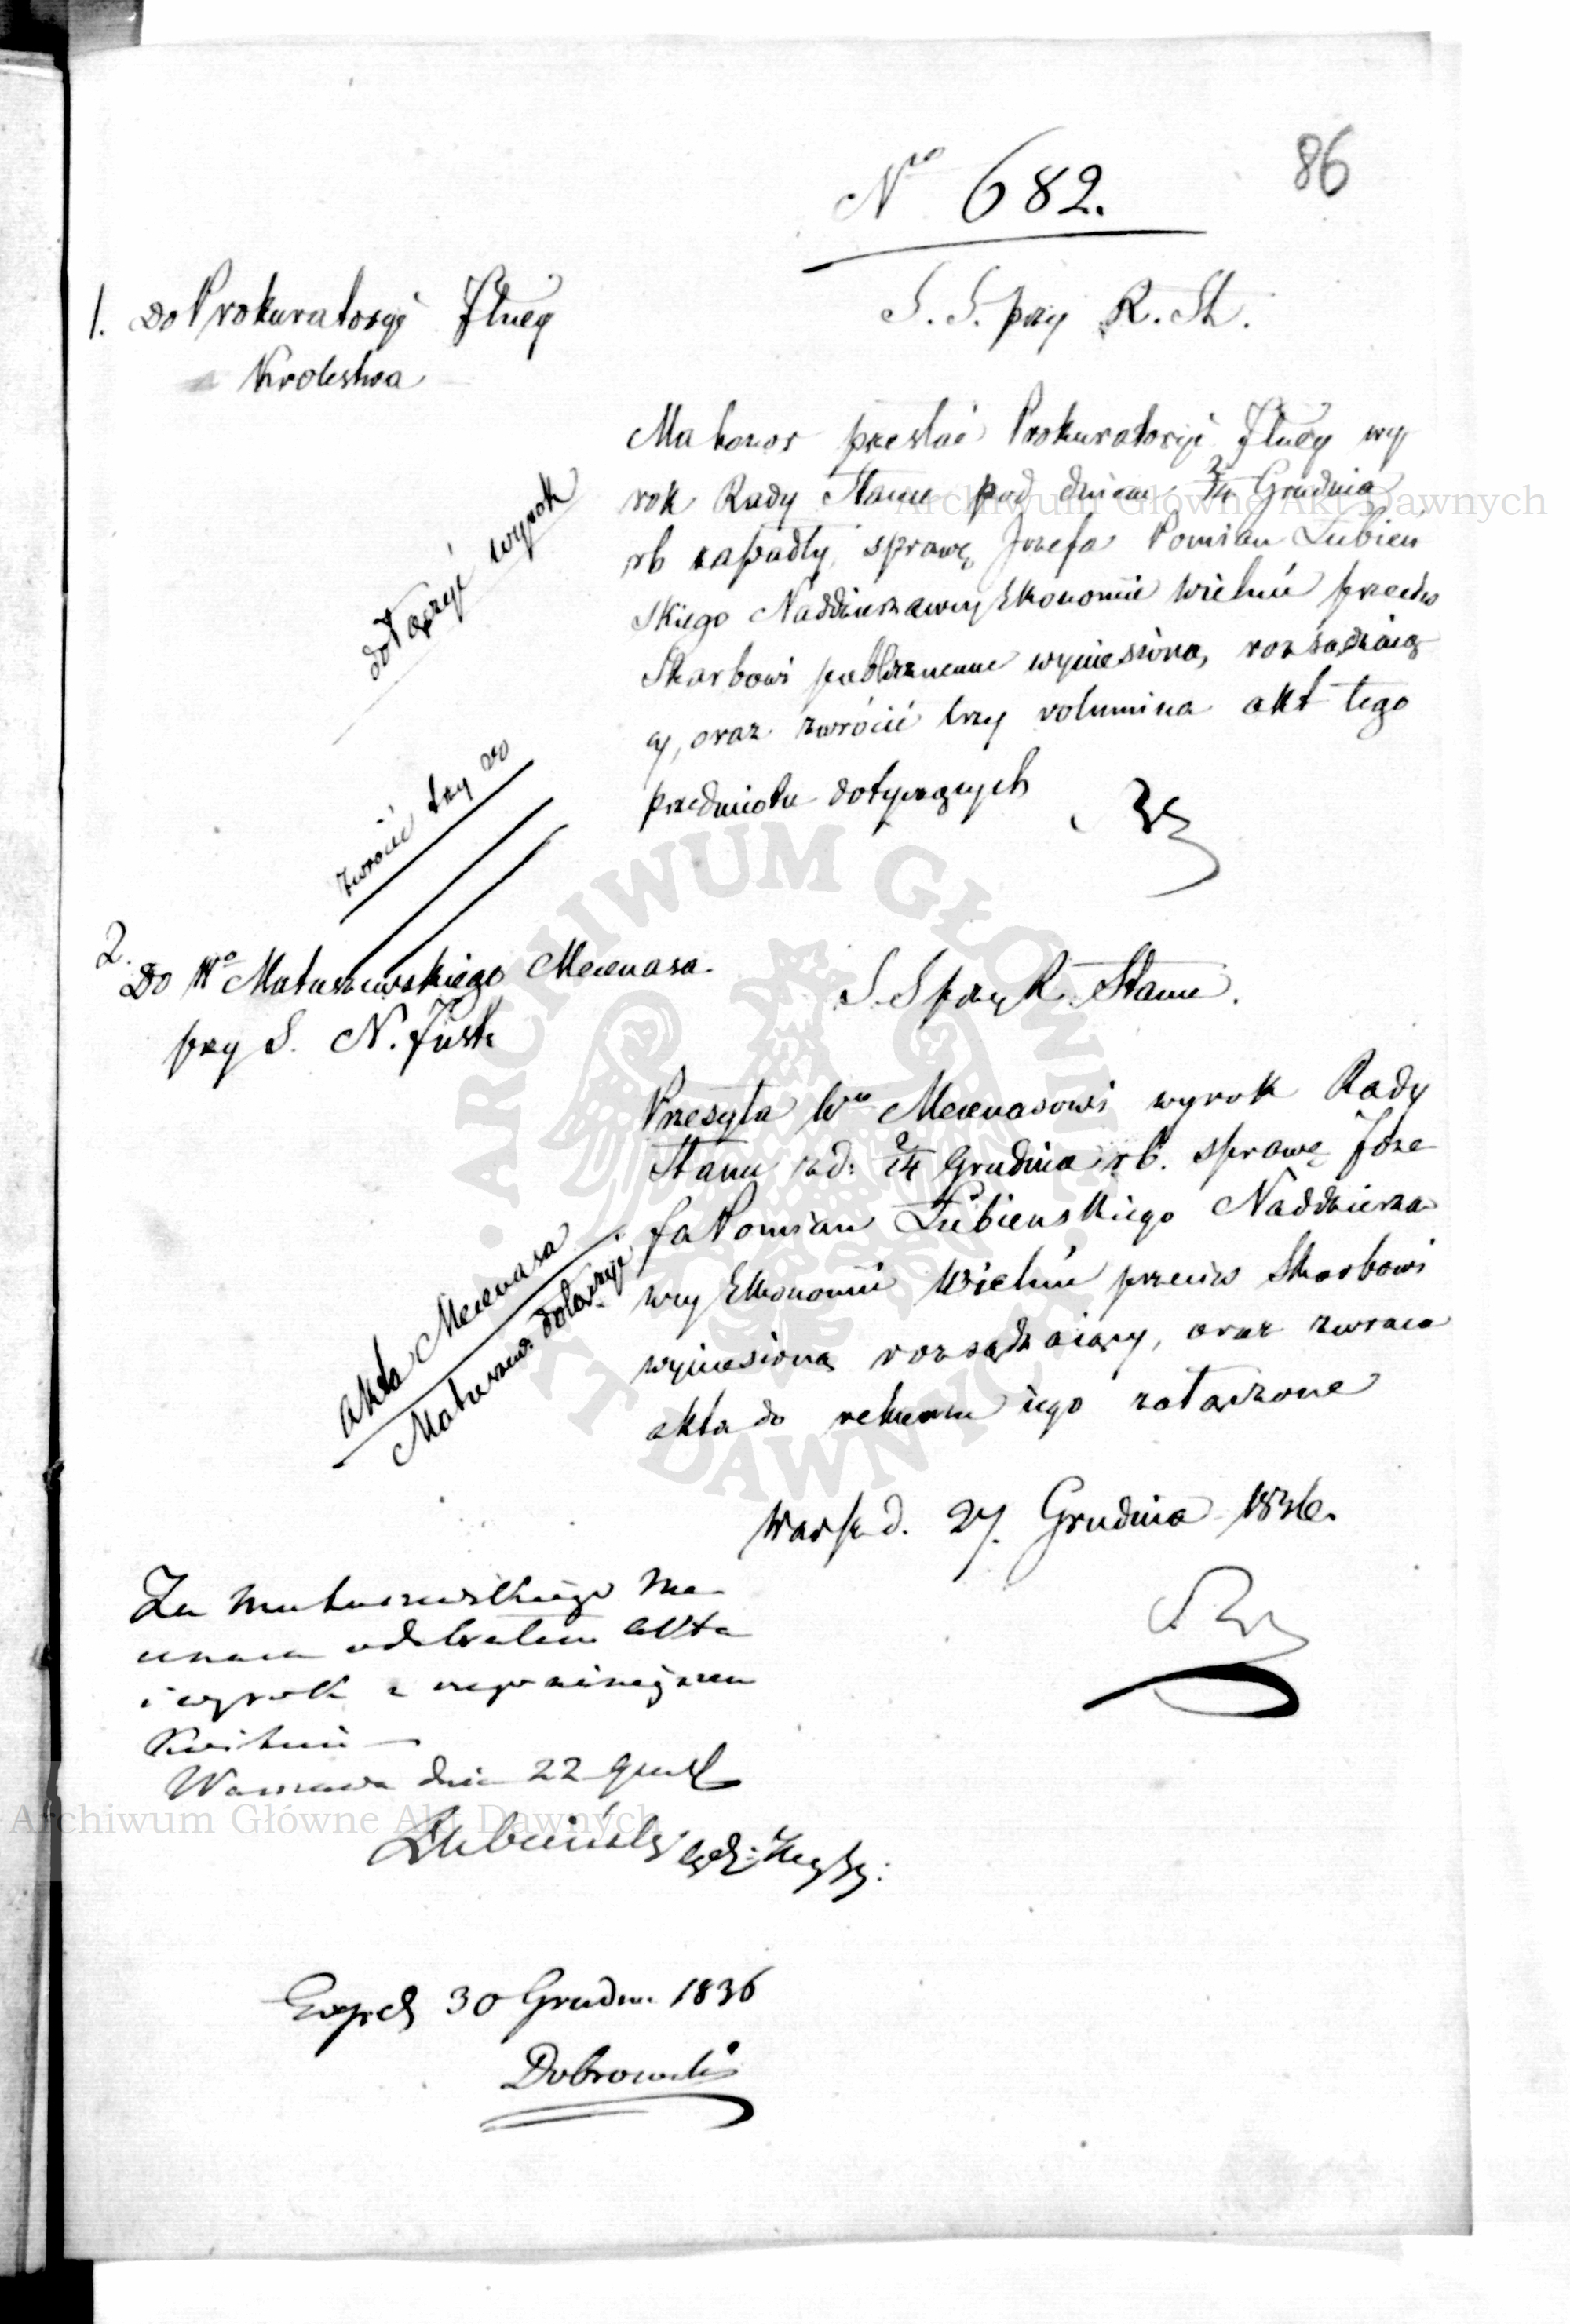 86
Nro 682.
1. Do Prokuratoryi Jlney
Krolestwa
S. S. przy R. St.
Ma honor przesłać Prokuratoryi Jlney wy
rok Rady Stanu pod dniem 2/14 Grudnia
rb zapadły, sprawę Jozefa Pomian Łubień
skiego Naddzierzawcy Ekonomii Wieluń przeciw
Skarbowi publicznemu wyniesioną, rozsądzaią
cy, oraz zwrócić trzy volumina akt tego
przedmiotu dotyczących
dołączyć wyrok
zwrócić trzy vo
2.
Do Wo Matuszewskiego Mecenasa
przy S. N. Inst:
S. S przy R. Stanu.
Przesyła Wu Mecenasowi wyrok Rady
Stanu z d: 2/14 Grudnia rb. sprawę Joze
fa Pomian Łubienskiego Naddzierza
wcy Ekonomii Wieluń przeciw Skarbowi
wyniesioną rozsądzaiący, oraz zwraca
akta do rekursu iego załączone
akta Mecenasa
Matuszews. dołączyć
Warsz d. 27. Grudnia 1836.
Za Matuszewskiego Me
cenasa odebrałem akta
i wyrok z czego niniejszem
Kwituię
Warszawa dnia 22 grud
Łubieński
Exped 30 Grudn. 1836
Dobrowolski
Archiwum Główne Akt Dawnych
Archiwum Główne Akt Dawnych
ARCHIWUM GŁÓWNE AKT DAWNYCH